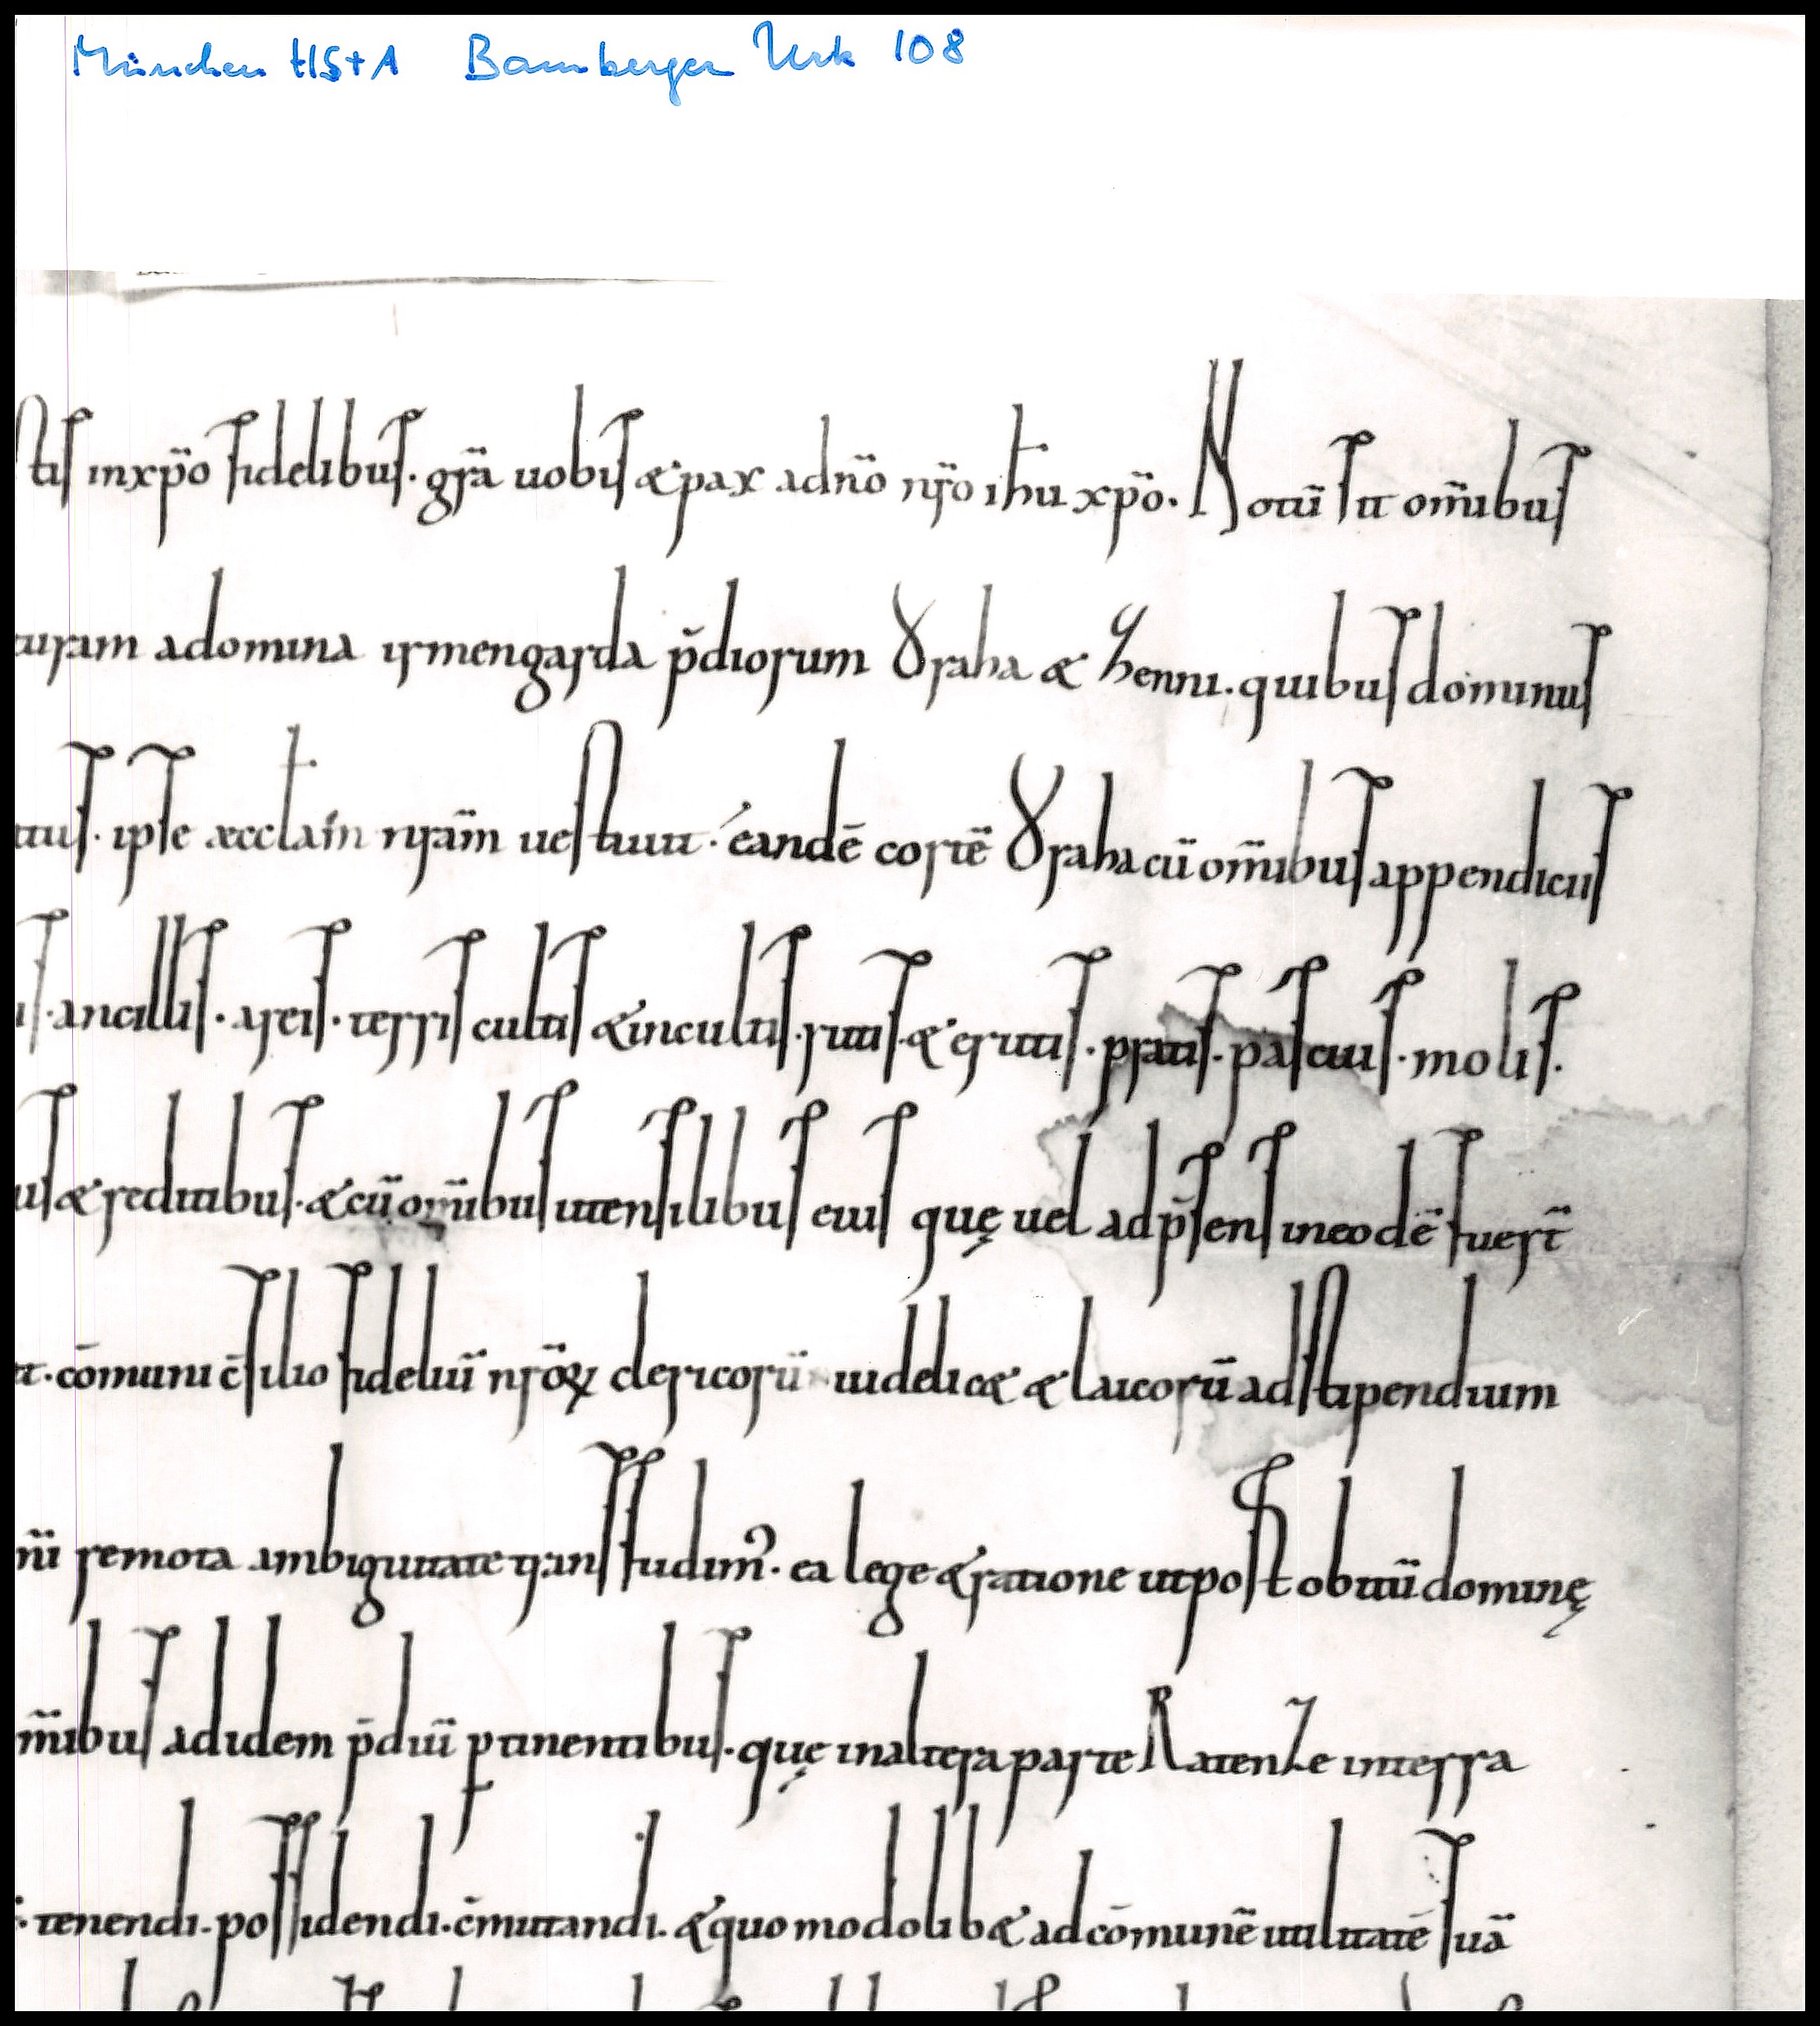 München HStA Bamberger Urk 108
tis inxp̃o fidelibus. gr̃a uobis &pax adnõ nr̃o ih̅u xp̃o. Notũ sit om̃ibus
turam adomina irmengarda p̃diorum Vraha & henni. quibus dominus
ipse aecclam̃ nr̃am uestiuit. eandẽ cortẽ Vraha cũ om̃ibus appendiciis
ancillis. areis. terris cultis &incultis. ruris. & erutis. pratis. pascuis. molis.
& reditibus. &cũ om̃ibus utensilibus eius quę uel adp̃sens ineodẽ fuer̃t
cõmuni c̃silio fideliũ nr̃oꝝ clericorũ uidelic& & laicorũ adstipendium
remota ambiguitate transfudim᾽. ea lege &ratione utpost obitũ dominę
m̃ibus adidem p̃diũ ꝑtinentibus. quę inaltera parte Ratenze interra
tenendi. possidendi. c̃mutandi. &quomodolib& adcõmunẽ utilitatẽ suã